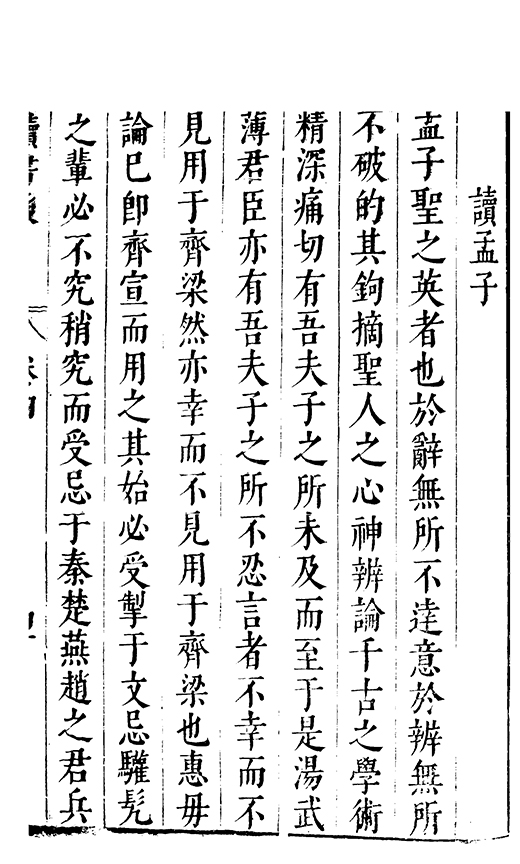 讀孟子
孟子聖之英者也於辭無所不達意於辨無所
不破的其鉤摘聖人之心神辨論千古之學術
精深痛切有吾夫子之所未及而至于是湯武
薄君臣亦有吾夫子之所不忍言者不幸而不
見用于齊梁然亦幸而不見用于齊梁也惠毋
論已卽齊宣而用之其始必受掣于文忌驩髠
之輩必不究稍究而受忌于秦楚燕趙之君兵
讀書後
卷四